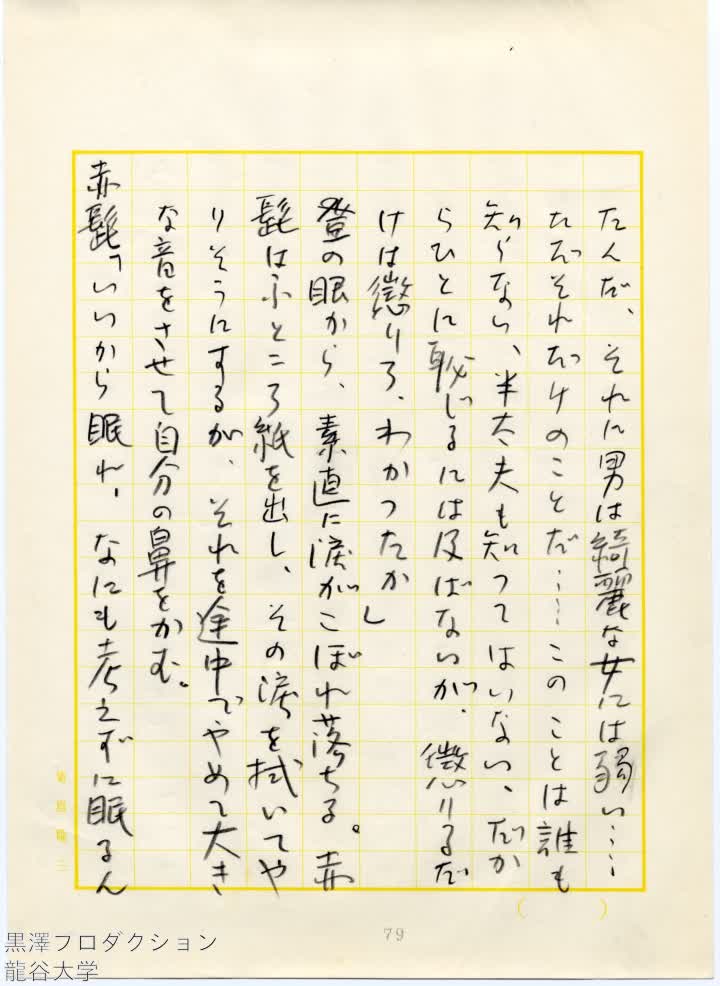 たんだ、それに男は綺麗な女には弱い……
たゞそれだけのことだ……このことは誰も
知らない、半太夫も知つてはいない、だか
らひとに恥じるには及ばないが、懲りるだ
けは懲りろ、わかつたか」
登の眼から、素直に涙がこぼれ落ちる。赤
髭はふところ紙を出し、その涙を拭いてや
りそうにするが、それを途中でやめて大き
な音をさせて自分の鼻をかむ。
赤髭「いいから眠れ、なにも考えずに眠るん
(　　)
79
黒澤プロダクション
龍谷大学